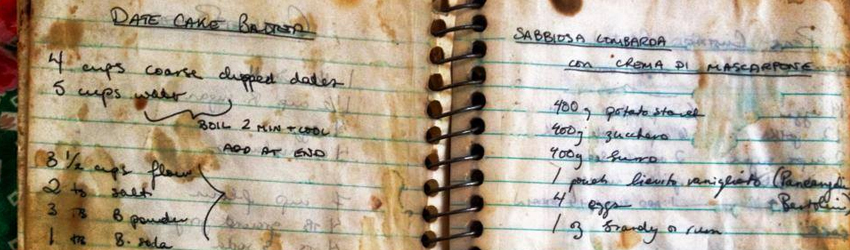 DATE CAKE BATTER
4 cups coarse chopped dates
5 cups water
BOIL 2 MIN + COOL
ADD AT END
3 1/2 cups flour
2 ts salt
3 ts B powder
1 ts B. soda
SABBIOSA LOMBARDA
con CREMA DI MASCARPONE
400 g potato starch
400g zucchero
400g burro
1 pouch lievito vanigliato (Paneangeli
Bertolini)
4 eggs
1 oz brandy or rum